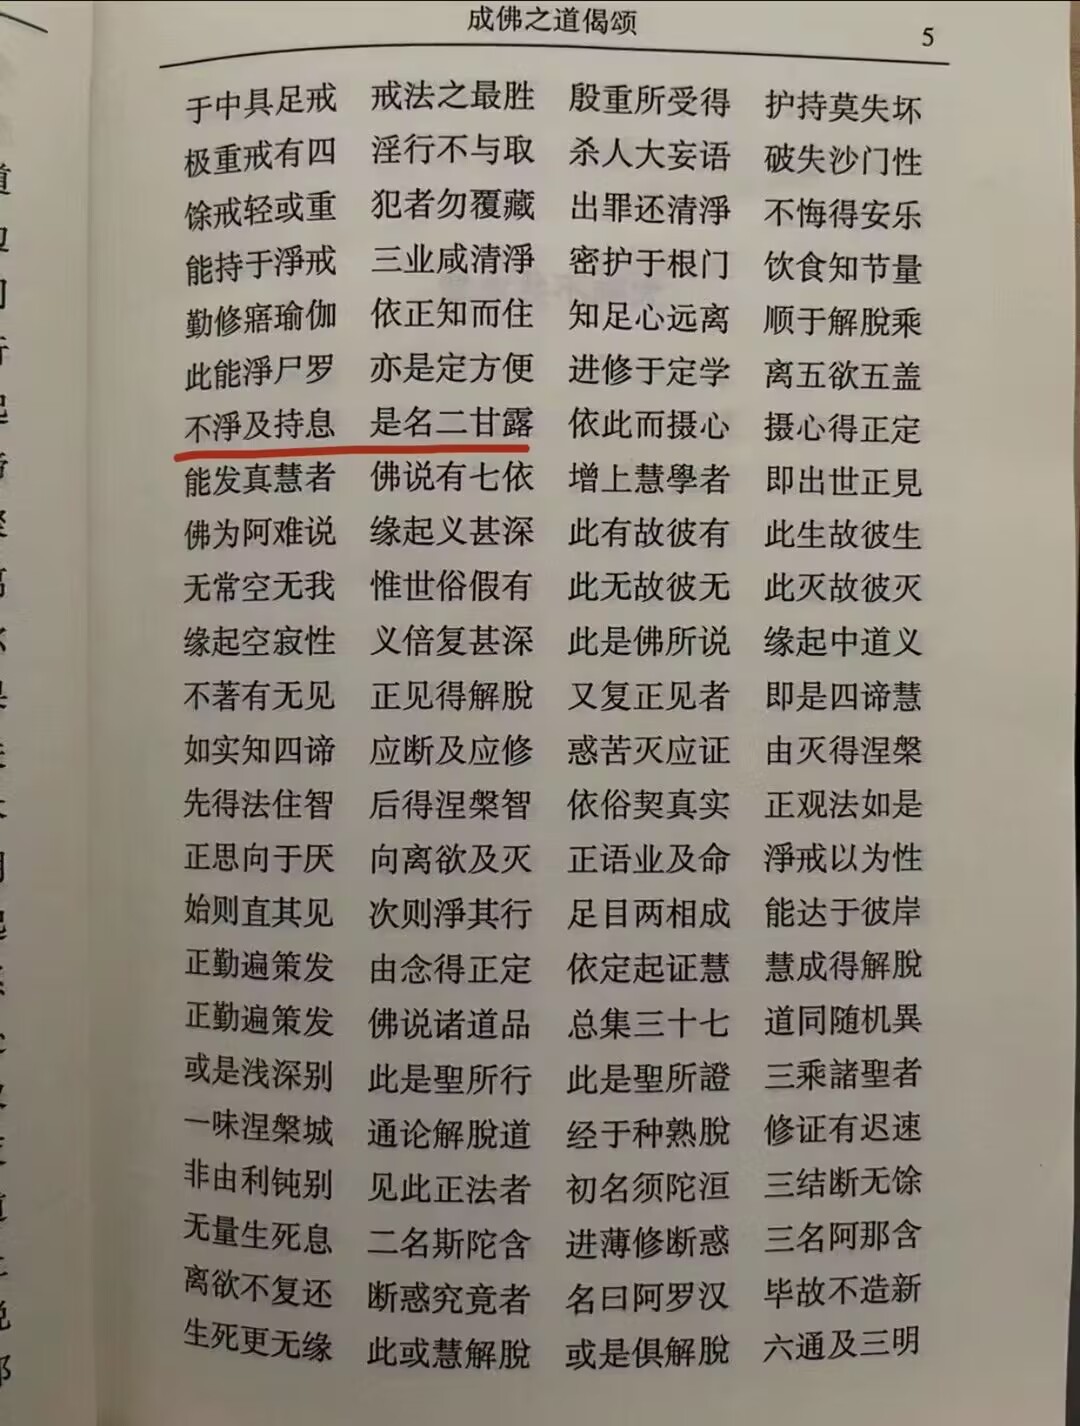 成佛之道偈颂
5
于中具足戒 戒法之最胜 殷重所受得 护持莫失坏
极重戒有四 淫行不与取 杀人大妄语 破失沙门性
馀戒轻或重 犯者勿覆藏 出罪还清淨 不悔得安乐
能持于淨戒 三业咸清淨 密护于根门 饮食知节量
勤修寤瑜伽 依正知而住 知足心远离 顺于解脫乘
此能淨尸罗 亦是定方便 进修于定学 离五欲五盖
不淨及持息 是名二甘露 依此而摄心 摄心得正定
能发真慧者 佛说有七依 增上慧學者 即出世正見
佛为阿难说 缘起义甚深 此有故彼有 此生故彼生
无常空无我 惟世俗假有 此无故彼无 此灭故彼灭
缘起空寂性 义倍复甚深 此是佛所说 缘起中道义
不著有无见 正见得解脫 又复正见者 即是四谛慧
如实知四谛 应断及应修 惑苦灭应证 由灭得涅槃
先得法住智 后得涅槃智 依俗契真实 正观法如是
正思向于厌 向离欲及灭 正语业及命 淨戒以为性
始则直其见 次则淨其行 足目两相成 能达于彼岸
正勤遍策发 由念得正定 依定起证慧 慧成得解脫
正勤遍策发 佛说诸道品 总集三十七 道同随机異
或是浅深别 此是聖所行 此是聖所證 三乘諸聖者
一味涅槃城 通论解脫道 经于种熟脫 修证有迟速
非由利钝别 见此正法者 初名须陀洹 三结断无馀
无量生死息 二名斯陀含 进薄修断惑 三名阿那含
离欲不复还 断惑究竟者 名曰阿罗汉 毕故不造新
生死更无缘 此或慧解脫 或是俱解脫 六通及三明